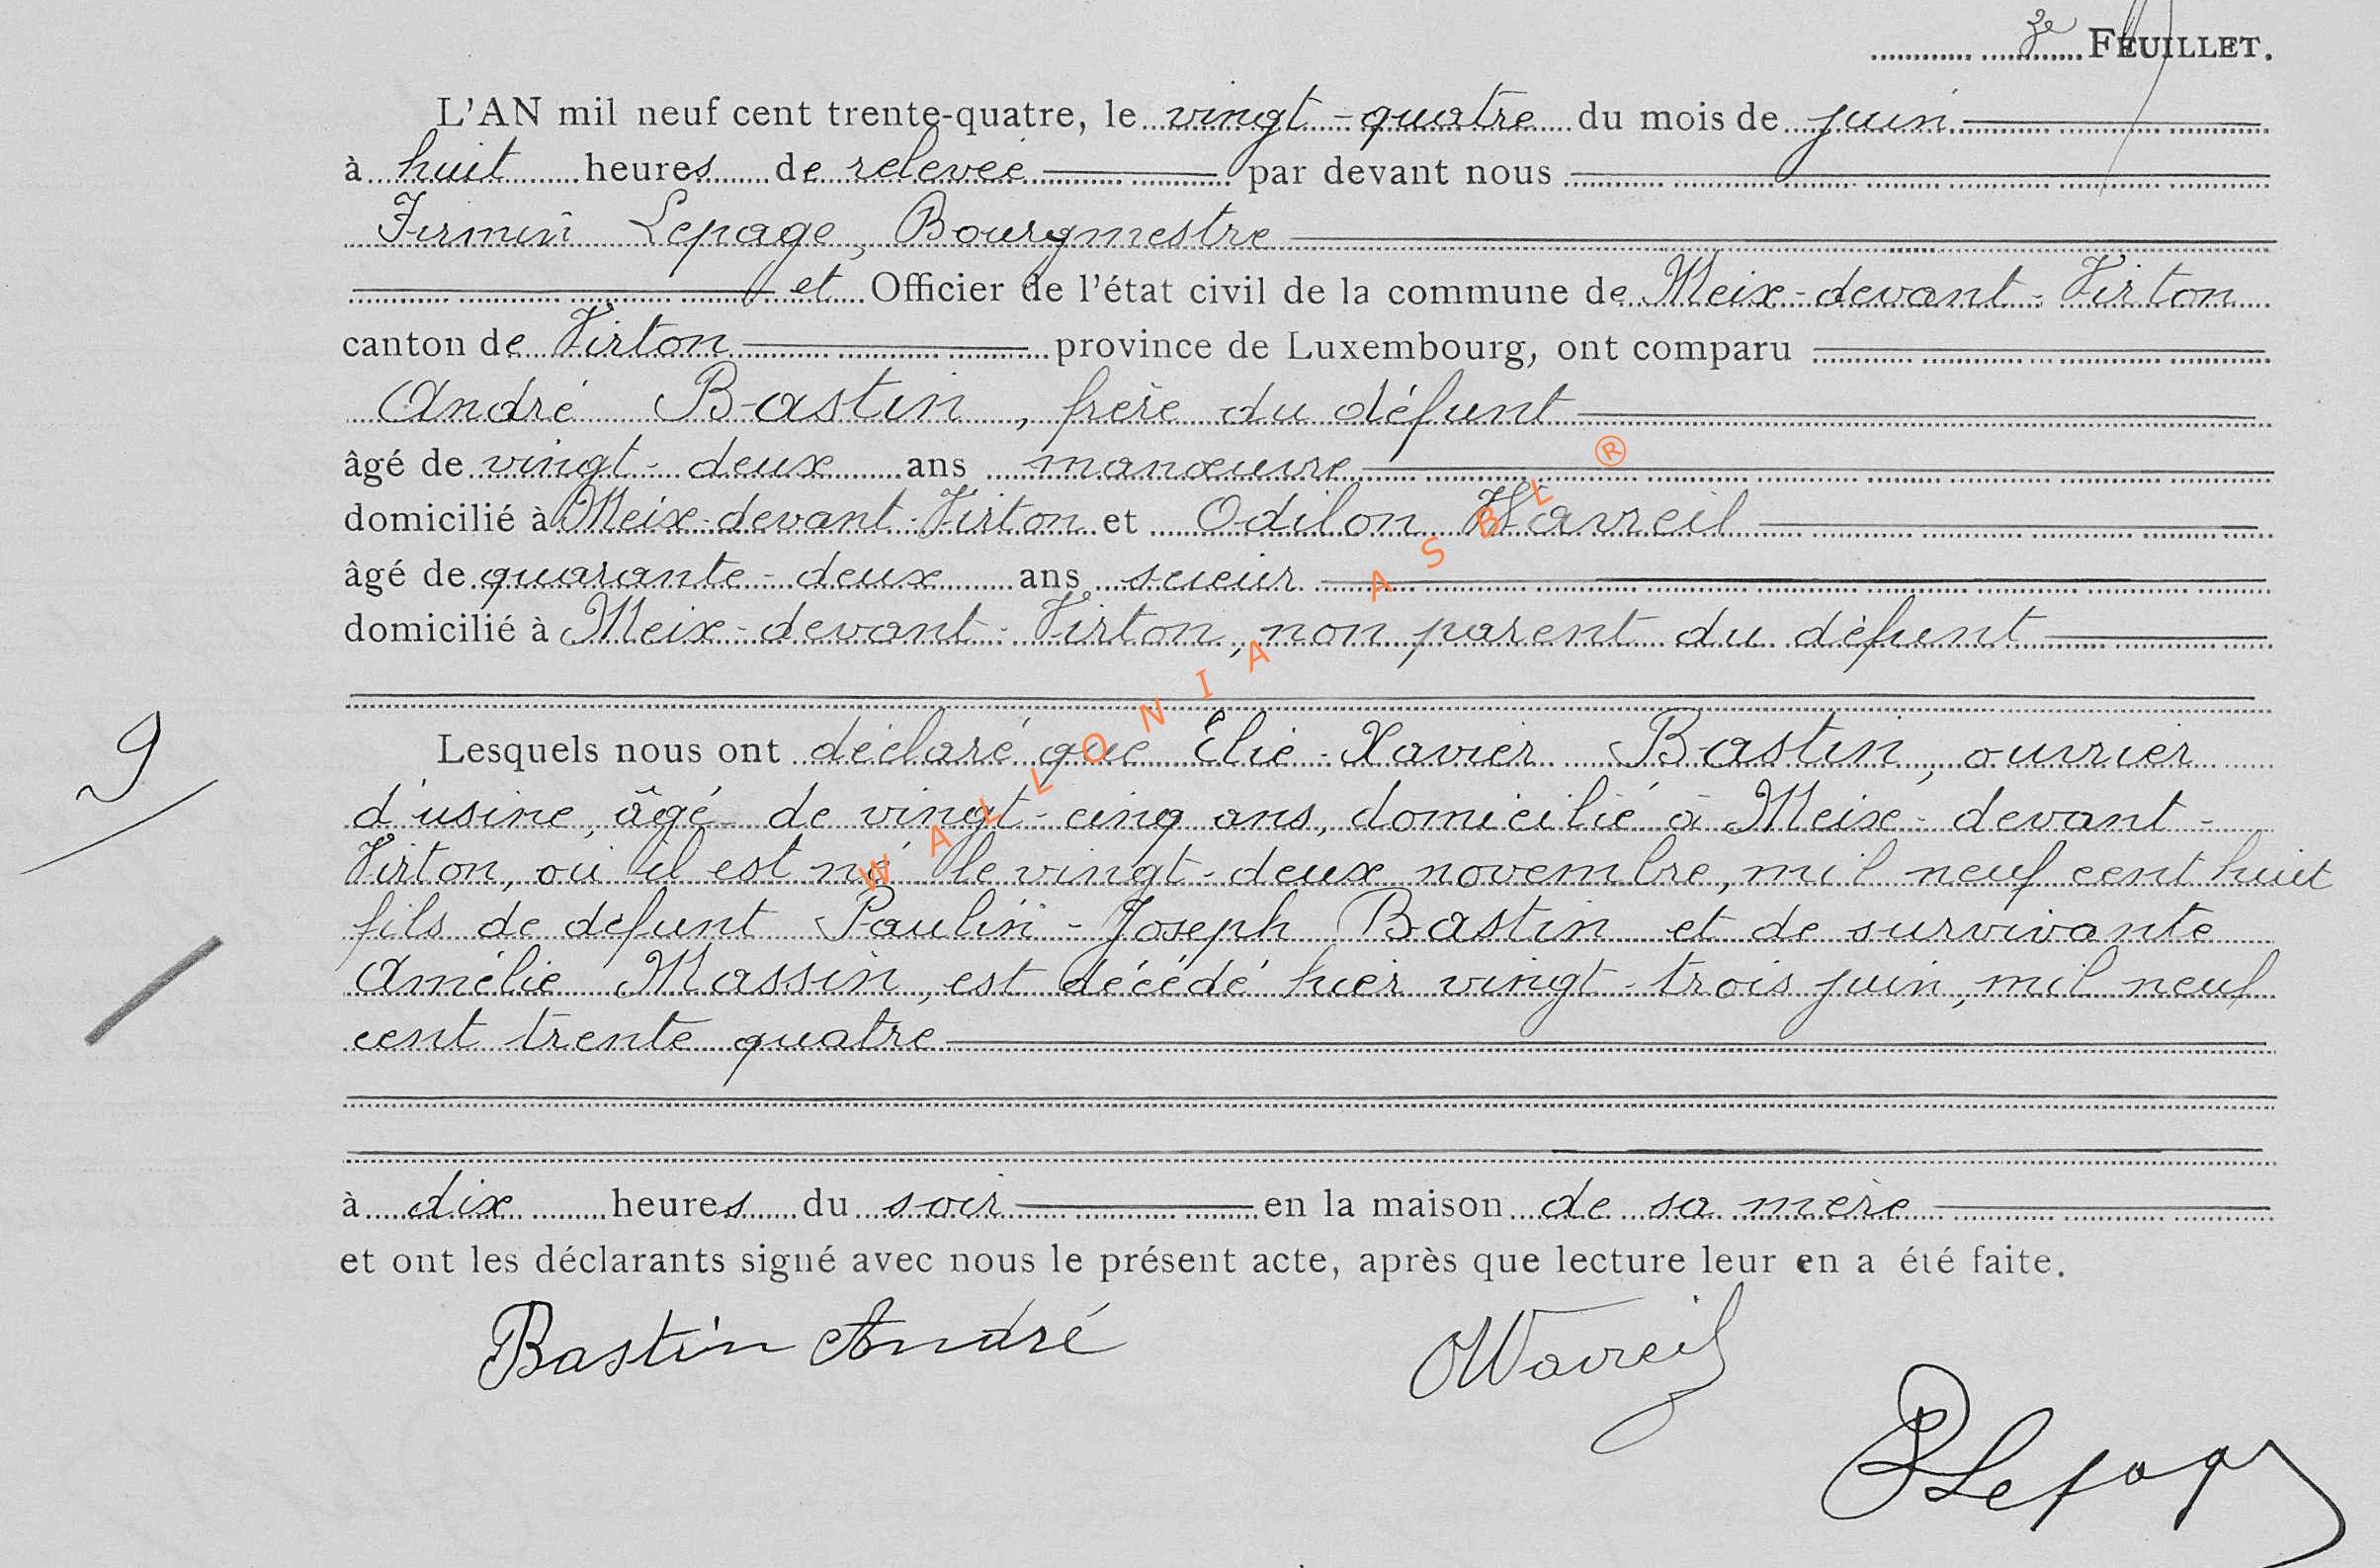 3e FEUILLET.
L'AN mil neuf cent trente-quatre, le vingt-quatre du mois de juin
à huit heures de relevée par devant nous
Firmin Lepage, Bourgmestre
et Officier de l'état civil de la commune de Meix-devant-Virton
canton de Virton province de Luxembourg, ont comparu
André Bastin, frère du défunt
âgé de vingt-deux ans manœuvre
domicilié à Meix-devant-Virton et Odilon Wavreil
âgé de quarante-deux ans scieur
domicilié à Meix-devant-Virton, non parent du défunt
9
Lesquels nous ont déclaré que Élie-Xavier Bastin, ouvrier
d'usine, âgé de vingt-cinq ans, domicilié à Meix-devant-
Virton, où il est né le vingt-deux novembre, mil neuf cent huit
fils de défunt Paulin-Joseph Bastin et de survivante
Amélie Massin, est décédé hier vingt-trois juin, mil neuf
cent trente quatre
à dix heures du soir en la maison de sa mère
et ont les déclarants signé avec nous le présent acte, après que lecture leur en a été faite.
Bastin André
OWavreil
Lepage
WALLONIA ASBL ®